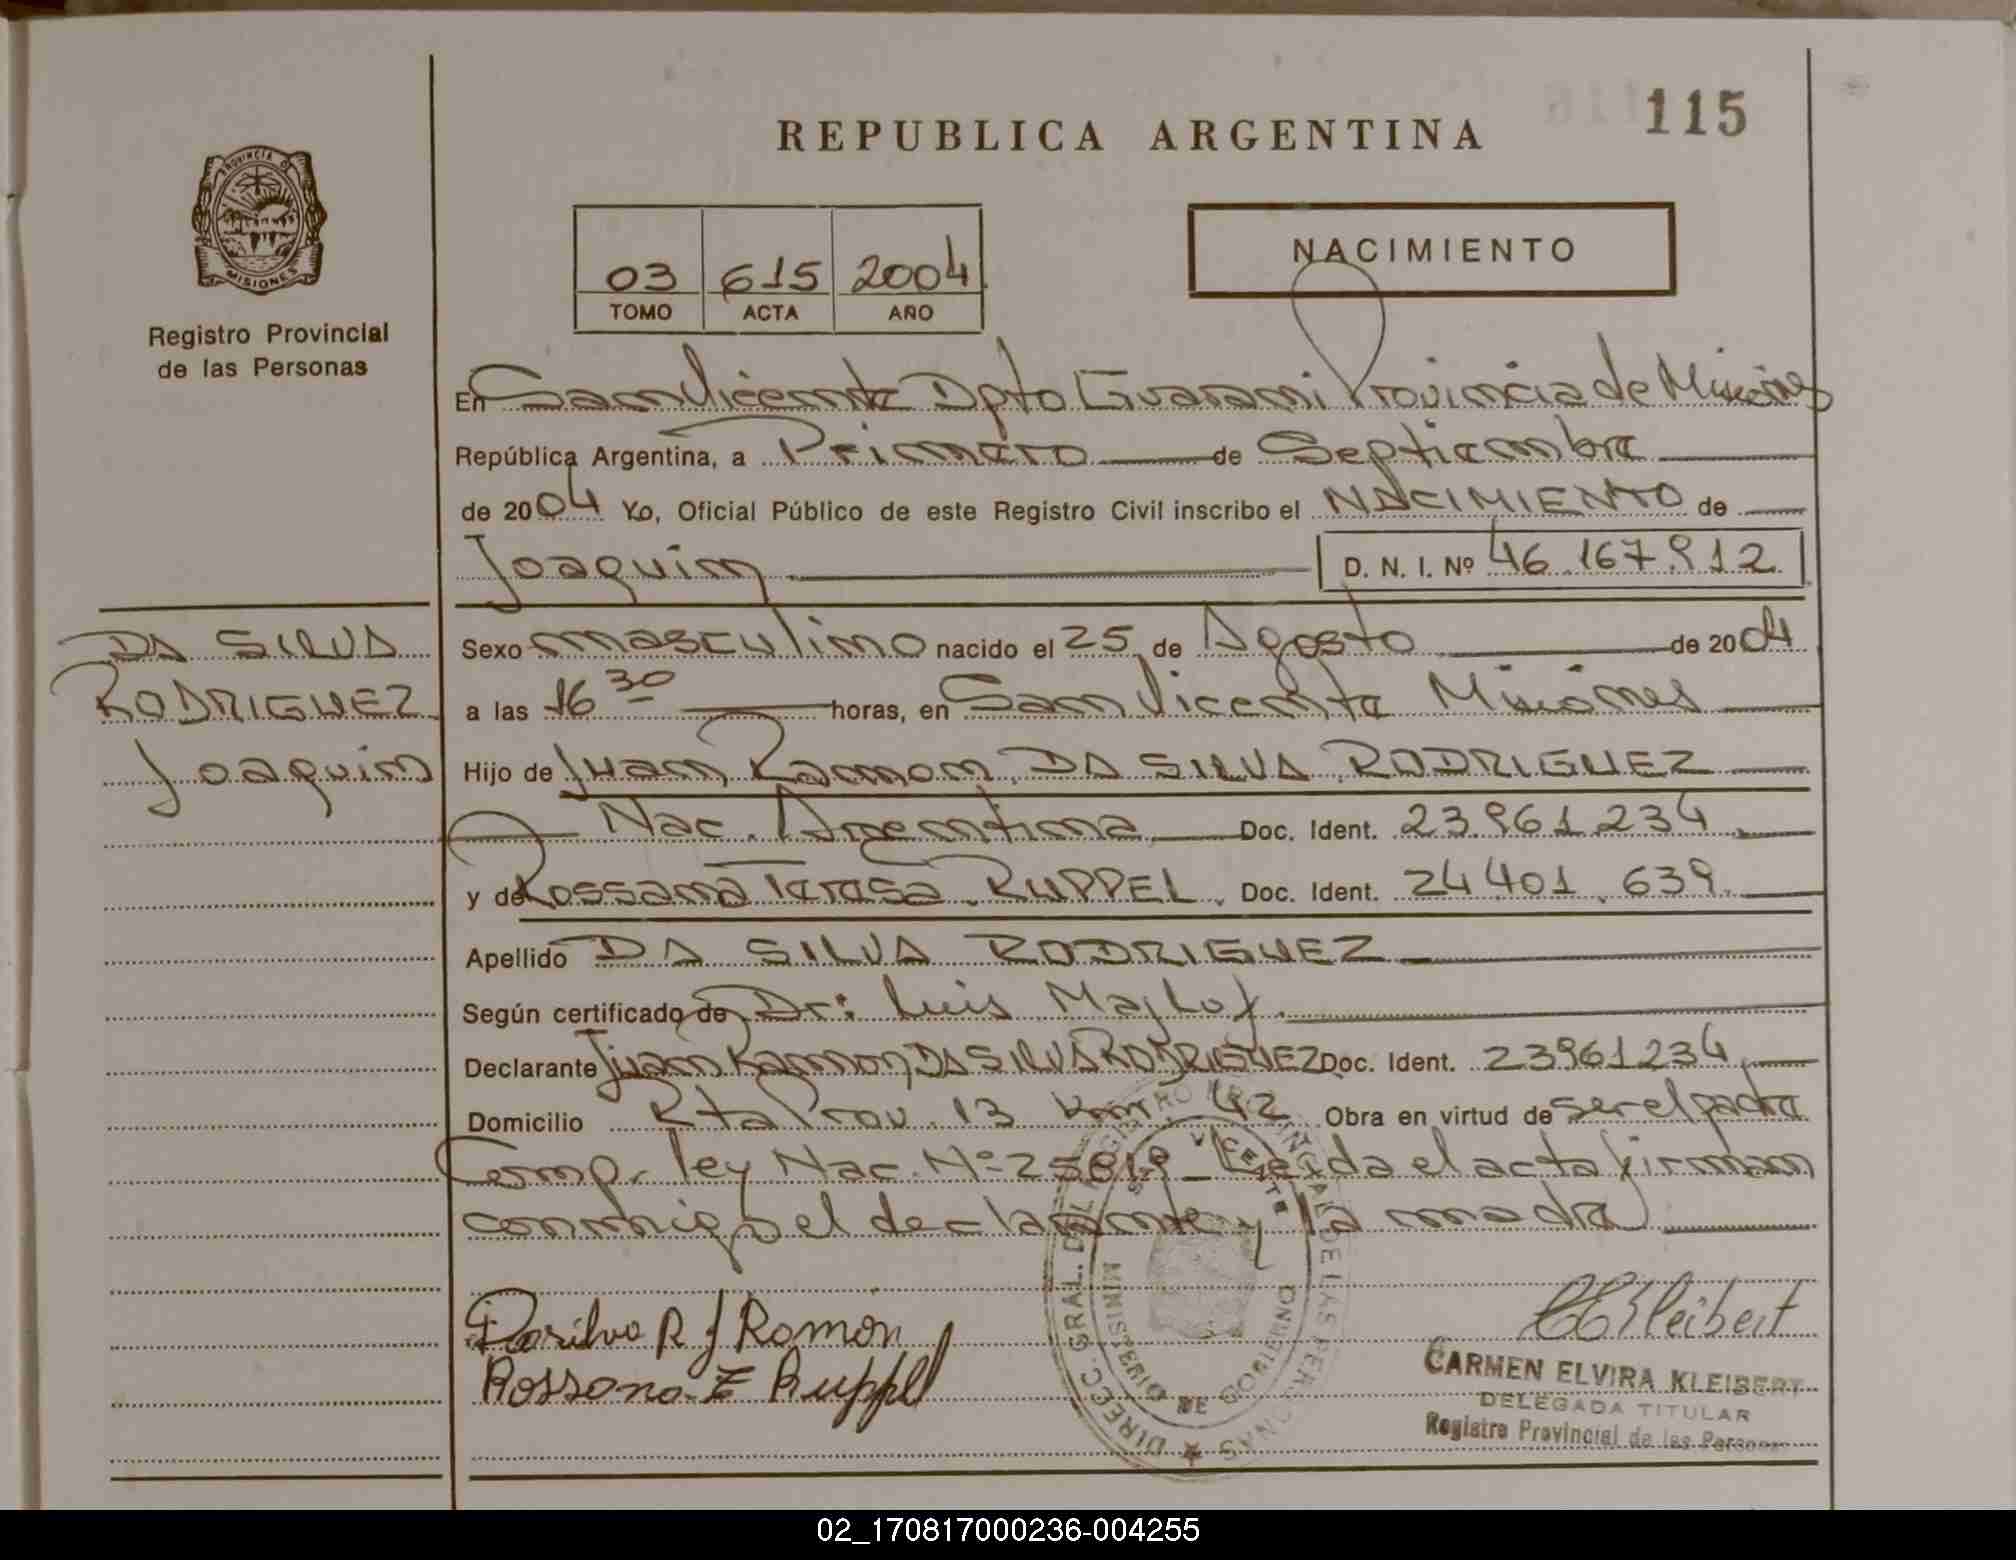 115
REPUBLICA ARGENTINA
PROVINCIA D
MISIONES
Registro Provincial
de las Personas
03 615 2004
TOMO ACTA AÑO
NACIMIENTO
En San Vicente Dpto Guarani Provincia de Misiones
República Argentina, a Primero de Septiembre
de 2004 Yo, Oficial Público de este Registro Civil inscribo el NACIMIENTO de
Joaquin D. N. I. Nº 46.167.912
DA SILVA
RODRIGUEZ
Joaquin
Sexo masculino nacido el 25 de Agosto de 2004
a las 16 30 horas, en San Vicente Misiones
Hijo de Juan Ramon DA SILVA RODRIGUEZ
Nac. Argentina Doc. Ident. 23.961.234
y de Rossana Teresa RUPPEL. Doc. Ident. 24.401.639
Apellido DA SILVA RODRIGUEZ
Según certificado de Dr: Luis
Declarante Juan Ramon DA SILVA RODRIGUEZ Doc. Ident. 23961234
Domicilio Rta Prov. 13 Km. 42 Obra en virtud de ser el padre
Comp. ley Nac. Nº 25819 Leida el acta firman
conmigo el declarante y la madre
Dasilva R J Ramón
Rossana T Ruppel
DIREC. GRAL. DEL REGISTRO PROVINCIAL DE LAS PERSONAS
MINISTERIO DE GOBIERNO
S. VICENTE
CEKleibert
CARMEN ELVIRA KLEIBERT
DELEGADA TITULAR
Registro Provincial de las Personas
02_170817000236-004255